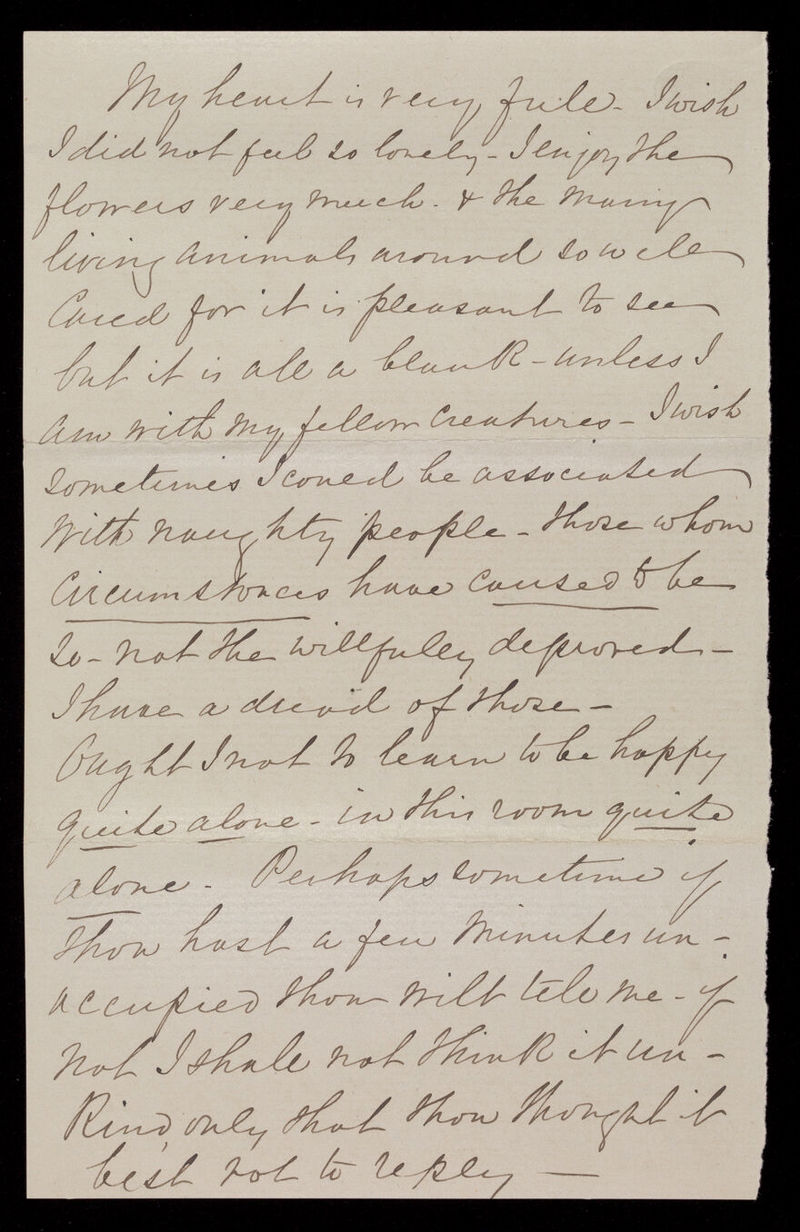 My heart is very full - I wish
I did not feel so lonely - I enjoy the
flowers very much - & the many
living animals around so well
cared for it is pleasant to see
but it is all a blank - unless I
am with my fellow creatures - I wish
sometimes I could be associated
with naughty people - those whom
circumstances have caused to be
so - not the willfully depraved -
I have a dread of those -
Ought I not to learn to be happy
quite alone - in this room quite
alone. Perhaps sometime if
thou hast a few minutes un-
occupied thou wilt tell me - if
not I shall not think it un-
kind, only that thou thought it
best not to reply —